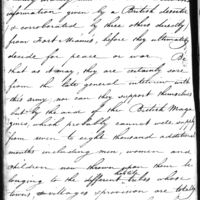 information given by a British deserter
& corroborated by three others directly
from Fort Miamis, before they ultimately
decide for peace, or war. Be
that as it may, they are certainly sore
from the late general interview with
this army, nor can they support themselves
but by the aid of the British Maga
zines, which probably cannot well supply
from seven to eight thousand additional
mouths including men, women and
children, now thrown upon them be
longing to the different hostile tribes whose
towns & villages & provision are totally